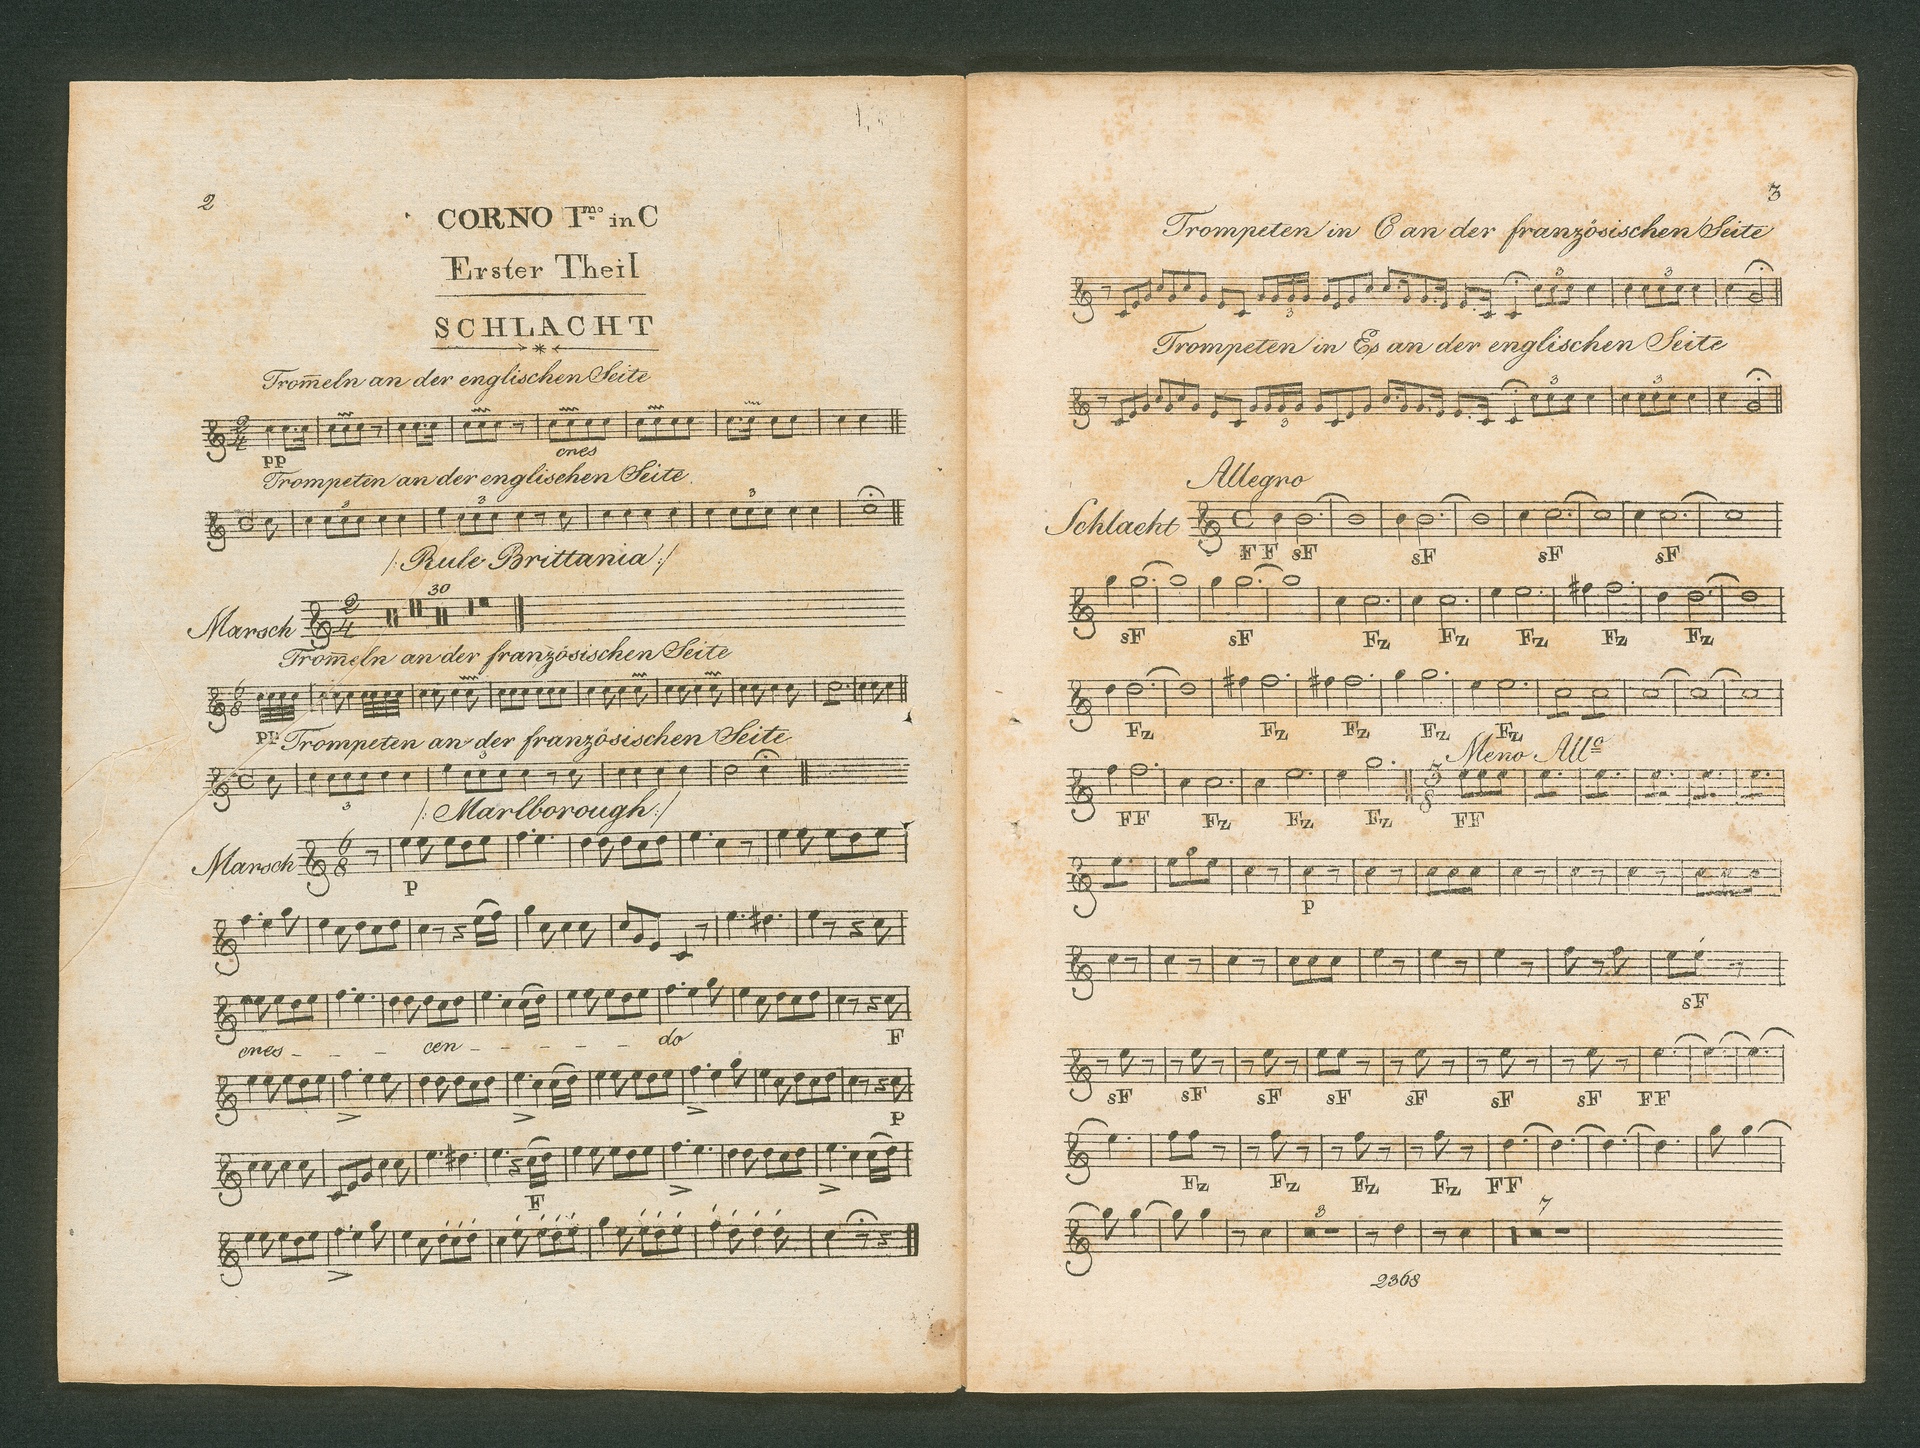 2
CORNO Imo in C
Erster Theil
SCHLACHT
Trom̄eln an der englischen Seite
2/4
pp
cres
Trompeten an der englischen Seite.
3 3 3
/: Rule Brittania :/
Marsch 2/4 30
Trom̄eln an der französischen Seite
6/8
pp Trompeten an der französischen Seite
3
3
/: Marlborough :/
Marsch 6/8
p
cres - - - cen - - - - - do F
p
F
3
Trompeten in C an der französischen Seite
3 3
3
Trompeten in Es an der englischen Seite
3 3
3
Allegro
Schlacht
FF sF sF sF sF
sF sF Fz Fz Fz Fz Fz
Fz Fz Fz Fz Fz
Meno Allo
3/8
FF Fz Fz Fz FF
p
sF
sF sF sF sF sF sF sF FF
Fz Fz Fz Fz FF
3 7
2368